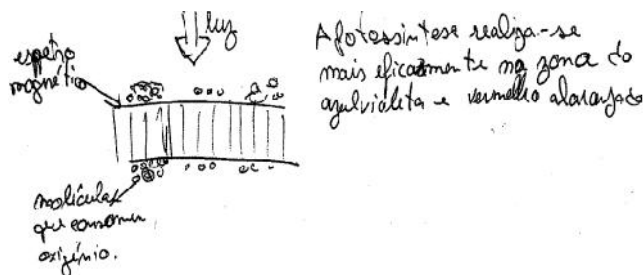 luz
espetro
magnético
A fotossíntese realiza-se
mais eficazmente na zona do
azulvioleta e vermelho alaranjado
moléculas
que consomem
oxigénio.